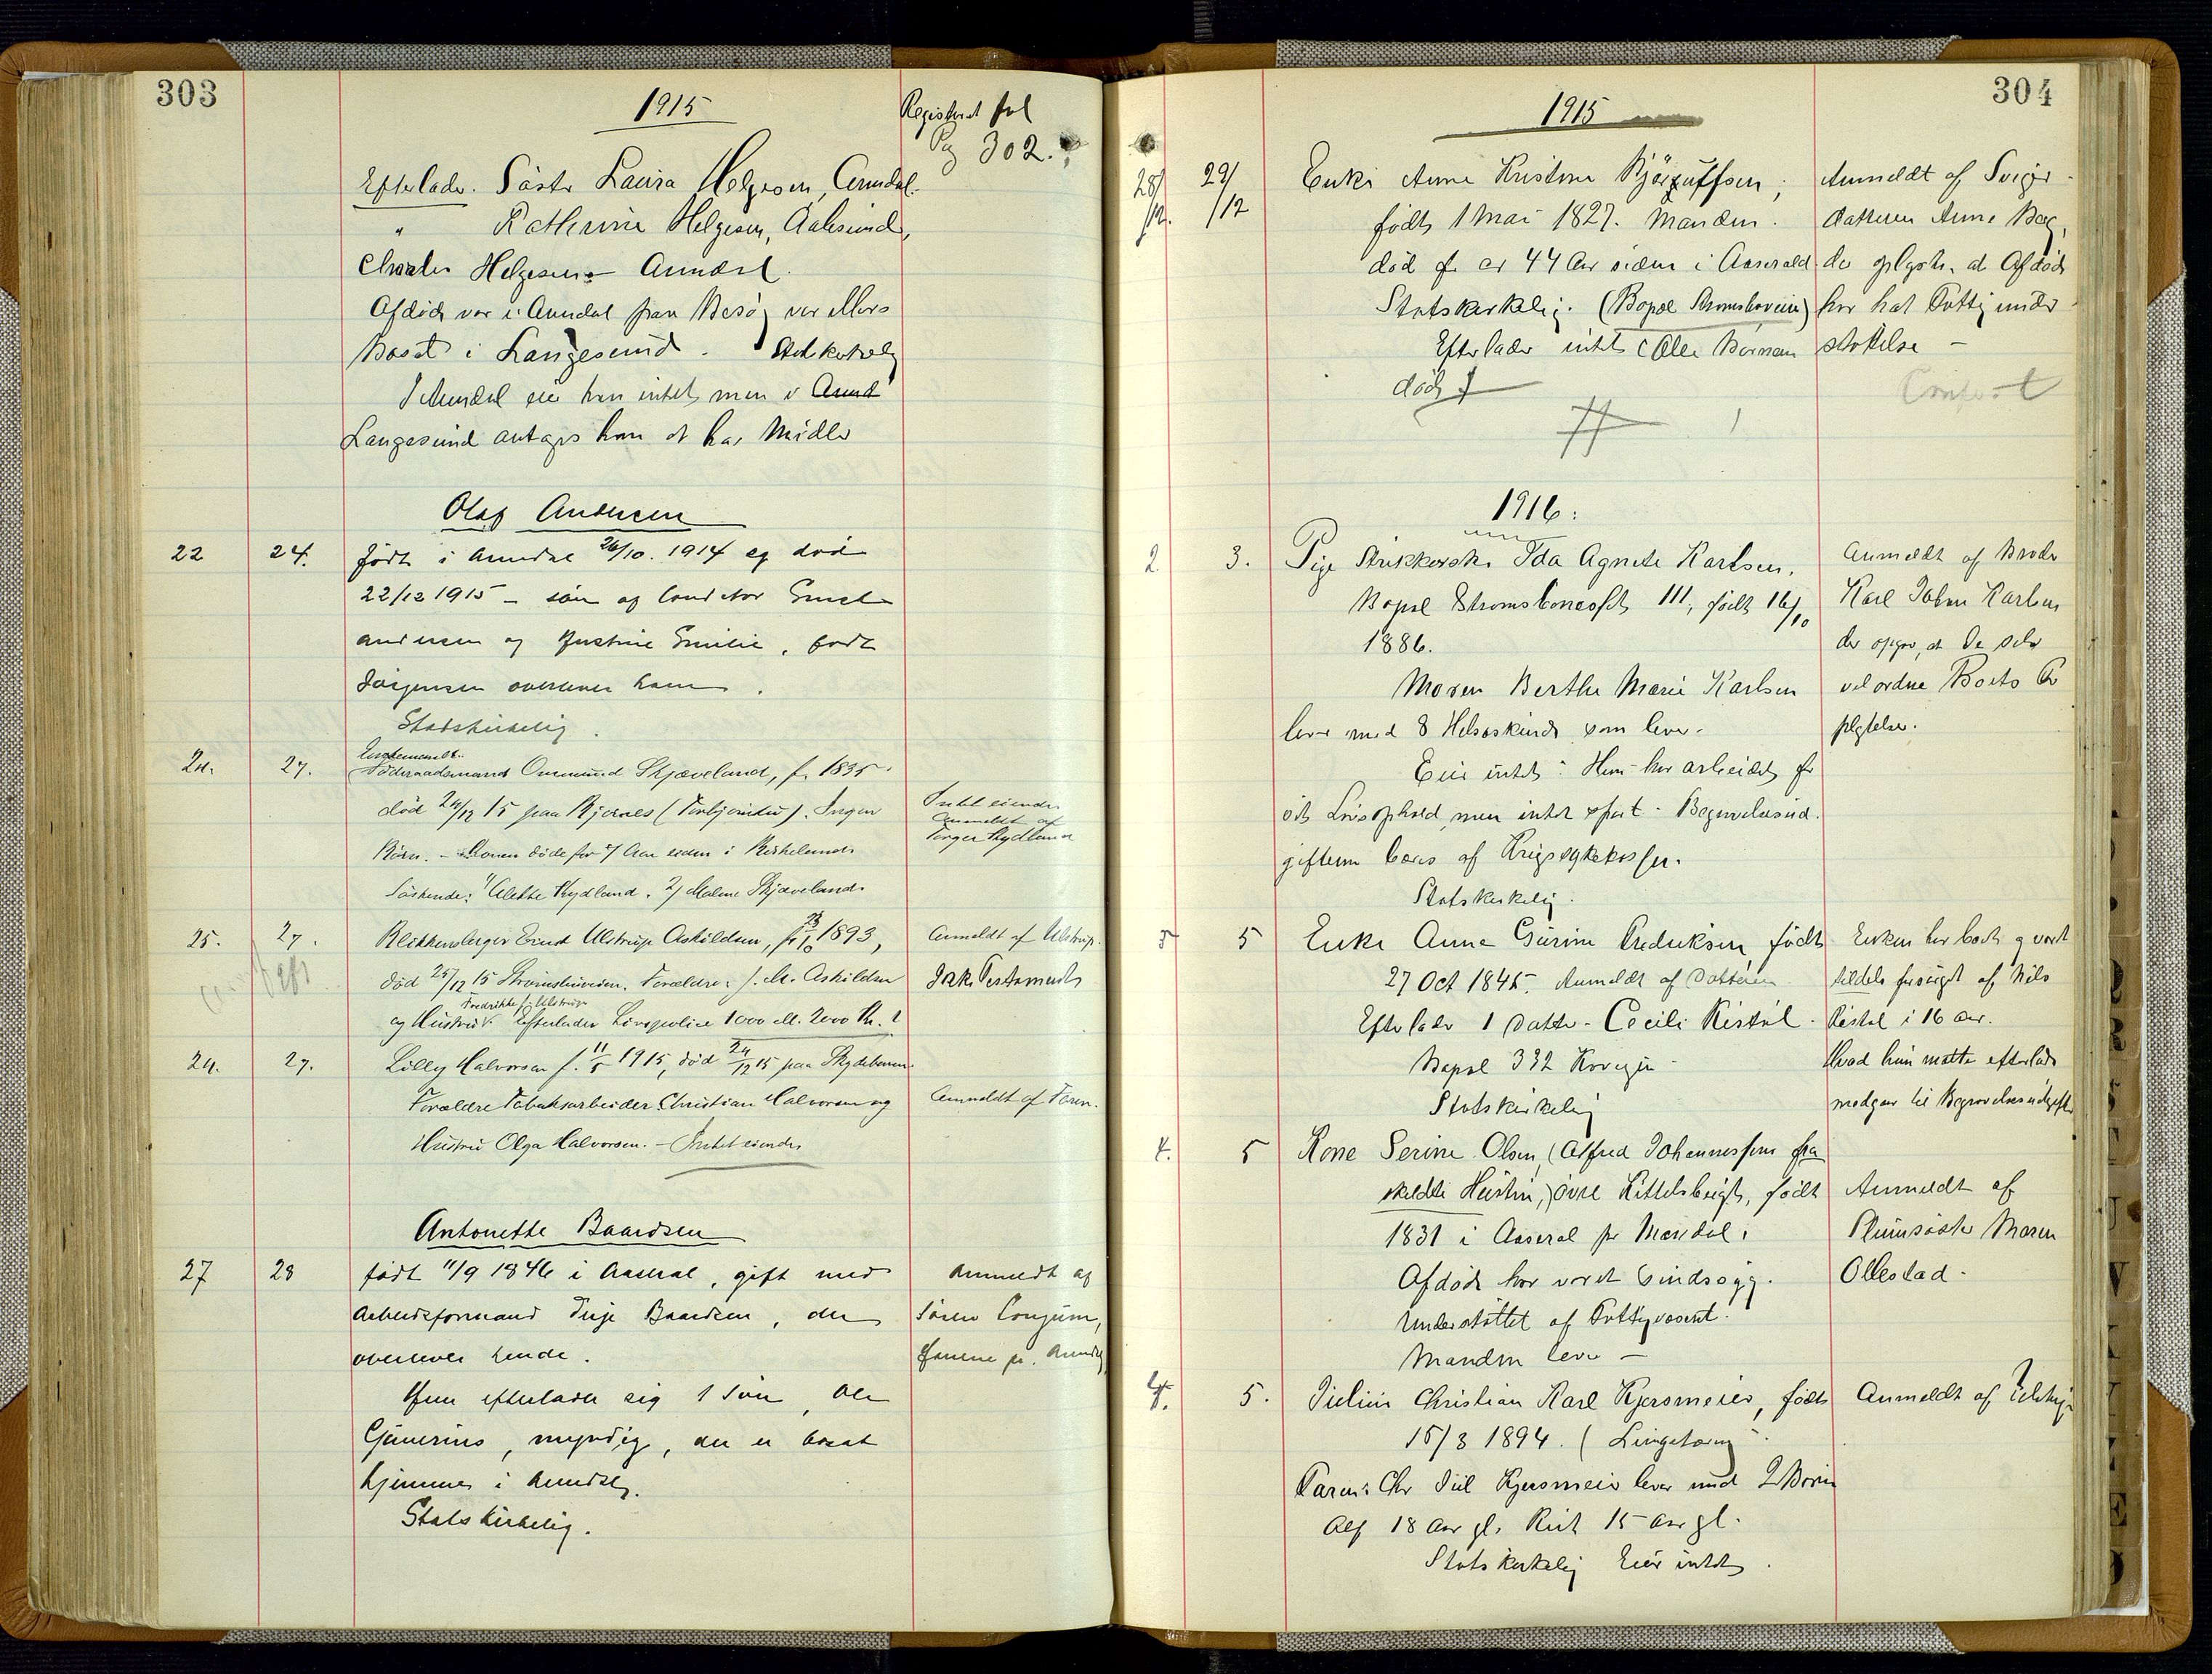 303
1915
Registrert fol
Pag 302.
Efterlader. Söster Laura Helgesen, Arendal.
" Kathrine Helgesen, Aalesund,
Charles Helgesen - Arendal.
Afdöde var i Arendal paa Besög var ellers
Bosat i Langesund. Statskirkelig
I Arendal eier han intet, men i Arend
Langesund antages han at ha Midler
Olaf Andersen
22 24. født i Arendal 26/10. 1914 og død
22/12 1915 - søn af Conditor Ernst
Andersen og Hustrue Emilie, født
Jörgensen overlever ham.
Statskirkelig.
Enkemand
24. 27. Föderaadsmand Ommund Skjæveland, f. 1835.
død 24/12 15 paa Bjornes. Ingen
Børn. - Konen døde for 7 Aar siden i Birkelund.
Söskende: 1/ Alette Rydland. 2/ Malene Skjæveland.
Intet eiende
Anmeldt af
Torger Rydland
25. 27. Blikkenslager Ernst Ulstrup Askildsen, f. 23/10 1893,
død 25/12 15 Strömsbuveien. Forældre: J. M. Askildsen
Fredrikke f. Ulstrup
og Hustru Efterlader Livspolice 1000 ell. 2000 Kr. ?
Anmeldt af Ulstrup.
Ikke Testamente
24. 27. Lilly Halvorsen f. 11/5 1915, død 24/12 15 paa Skydebanen.
Forældre Tobaksarbeider Christian Halvorsen og
Hustru Olga Halvorsen. - Intet eiende
Anmeldt af Faren.
Antonette Baardsen
27 28 født 11/9 1846 i Aaseral, gift med
Arbeidsformand Terje Baardsen, der
overlever hende.
Hun efterlader sig 1 Søn, Ole
Gunerius, myndig, der er bosat
hjemme i Arendal.
Statskirkelig.
Anmeldt af
Sören Longum,
pr. Arendal
304
1915
28/12. 29/12 Enke Anne Kristine Bjørgulfsen,
født 1 Mai 1827. Manden
död f. ca 44 Aar siden i Aaserald
Statskirkelig. (Bopæl Strømsboveien)
Efterlader intet (Alle Børnene
døde)
Anmeldt af Sviger
datteren Anne Berg,
der oplyste, at Afdöde
har hat Fattigunder
støttelse -
1916.
2 3. Pige Strikkerske Ida Agnete Karlsen,
Bopæl Strømsboneset 111, født 16/10
1886.
Moren Berthe Marie Karlsen
lever med 8 Helsøskende som lever.
Eier intet. Hun har arbeidet for
sit Livsophold, men intet spart - Begravelsesud.
gifterne bæres af Krigssykekassen.
Statskirkelig.
Anmeldt af Broder
Karl Johan Karlsen
der opgav, at De selv
vil ordne Boets For
pligtelser.
3 5 Enke Anne Gurine Fredriksen, født
27 Oct 1845. Anmeldt af Datteren
Efterlader 1 Datter - Cecilie Ristøl.
Bopæl 332
Statskirkelig
Enken har bodd og vært
tildels forsörget af Nils
Ristøl i 16 Aar.
Hvad hun maatte efterlade
medgaar til Begravelsesudgifter
4. 5 Kone Serine Olsen, (Alfred Johannessens fra
skildte Hustru,) övre Kittelsbugt, født
1831 i Aaseral pr Mandal.
Afdøde har været Sindssyg.
Understøttet af Fattigvæsenet.
Manden lever -
Anmeldt af
Pleiesøster Maren
Ollestad.
4. 5. Julius Christian Karl Kjersmeier, født
15/3 1894.
Faren: Chr Juel Kjersmeier lever med 2 Børn
Alf 18 Aar gl. 15 Aar gl.
Statskirkelig Eier intet.
Anmeldt af Ulstrup